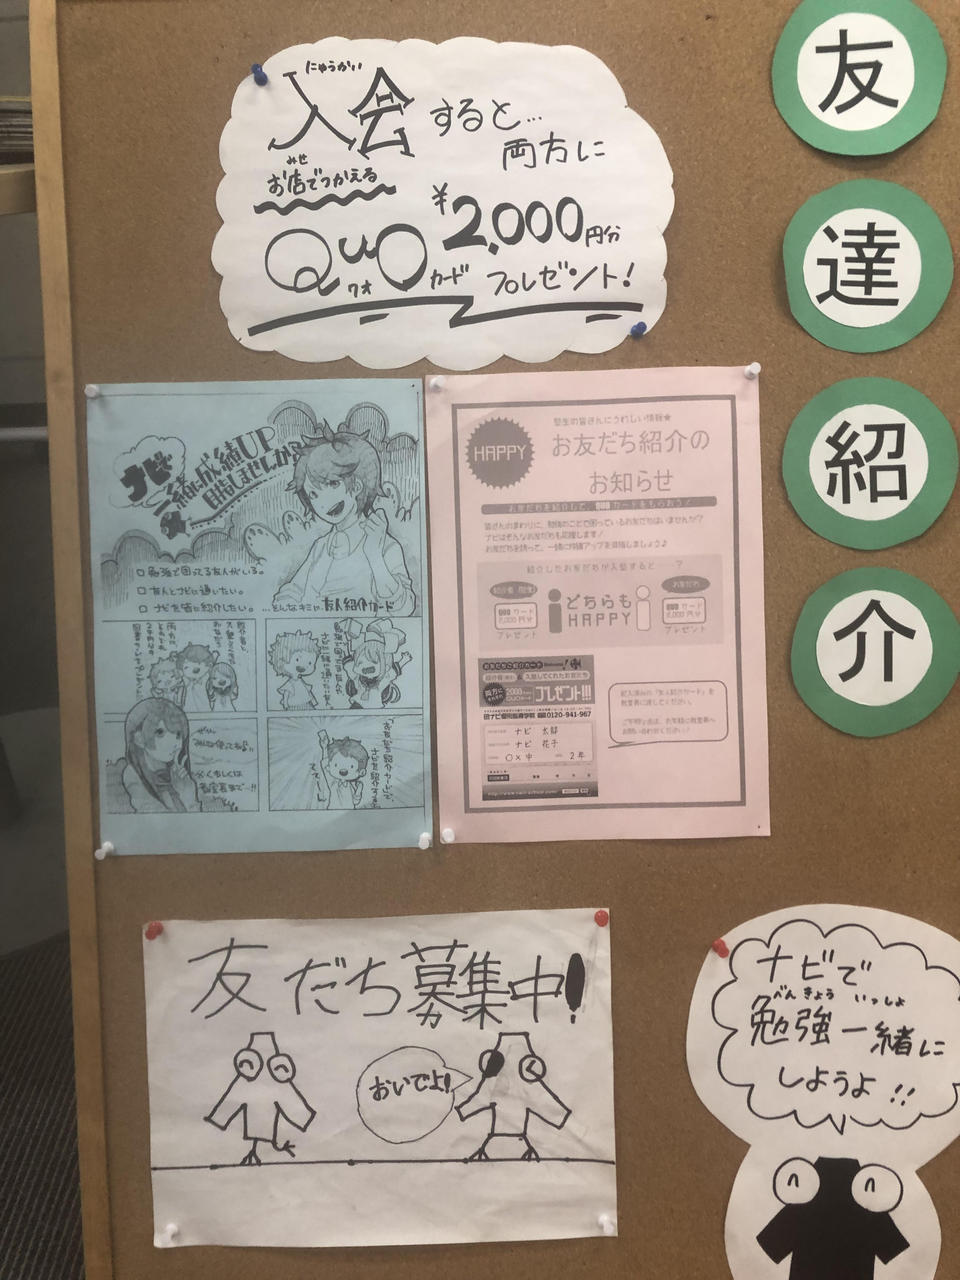 にゅうかい
入会すると…
両方に
みせ
お店でつかえる
¥2,000円分
QUOカード
クオ
プレゼント!
友
達
紹
介
ナビで
一緒に成績UP
目指しませんか?
□勉強で困ってる友人がいる。
□友人とナビに通いたい。
□ナビを皆に紹介したい。
…そんなキミに友人紹介カード
HAPPY
塾生の皆さんにうれしい情報★
お友だち紹介の
お知らせ
お友だちを紹介して、QUOカードをもらおう!
皆さんのまわりに、勉強のことで困っているお友だちはいませんか?
ナビはそんなお友だちも応援します!
お友だちを誘って、一緒に成績アップを目指しましょう♪
紹介したお友だちが入塾すると……?
お友だち
QUOカード
2,000円分
プレゼント
どちらも
HAPPY
QUOカード
2,000円分
プレゼント
お友だちご紹介カード
入塾してくれたお友だち
プレゼント!!!
ナビ個別指導学院
0120-941-967
ナビ 太郎
ナビ 花子
〇×中 2年
記入済みの「友人紹介カード」を
教室長に渡してください。
ご不明な点は、お気軽に教室長へ
お問い合わせください♪
友だち募集中!
おいでよ!
ナビで
べんきょう いっしょ
勉強一緒に
しようよ!!